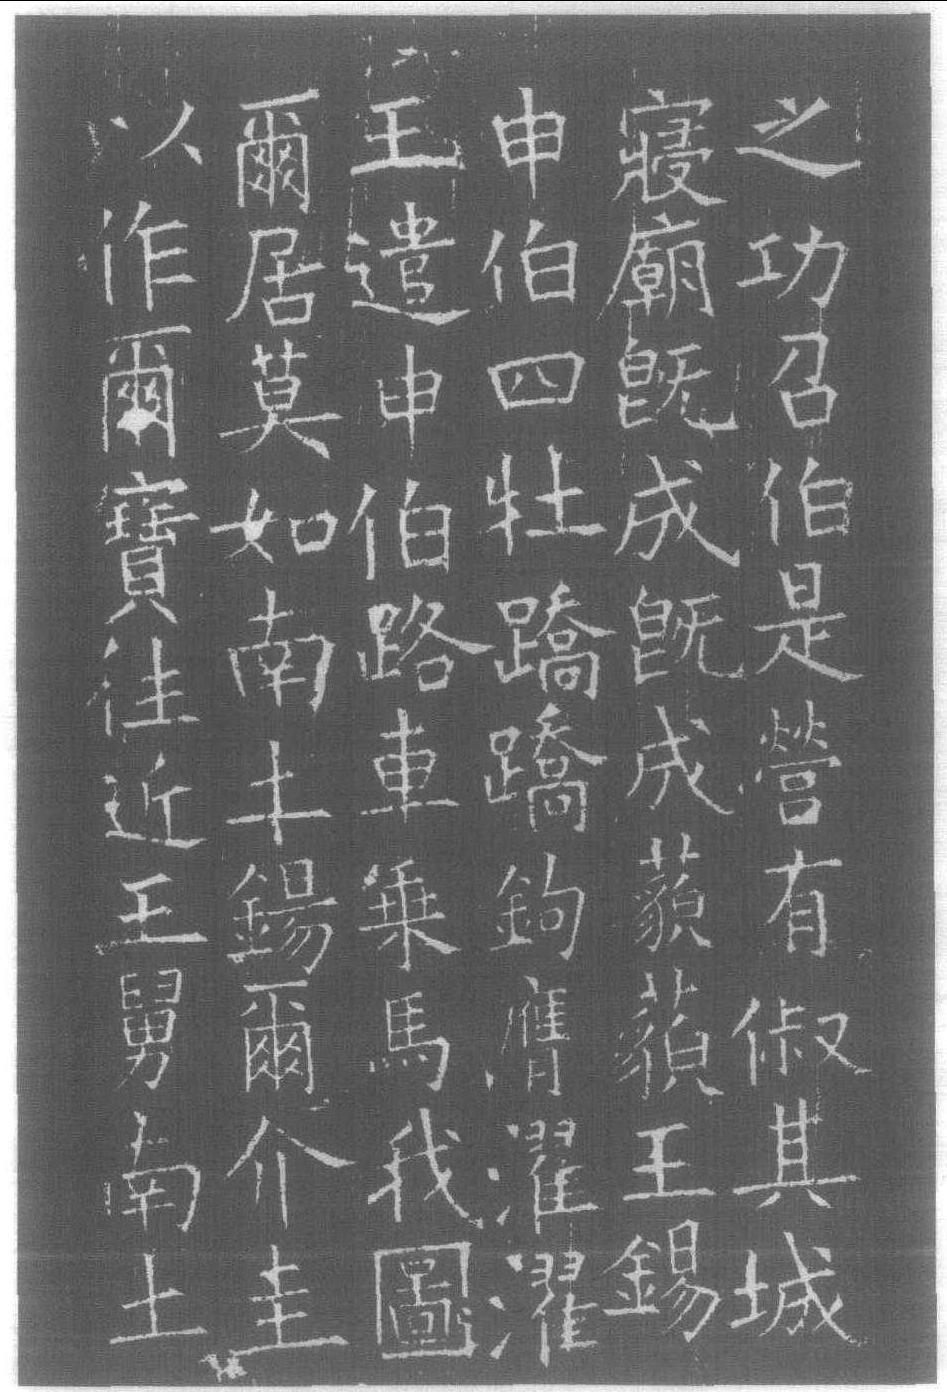 之功召伯是營有俶其城
寢廟既成既成藐藐王錫
申伯四牡蹻蹻鉤膺濯濯
王遣申伯路車乗馬我圖
爾居莫如南土錫爾介圭
以作爾寶往近王舅南土